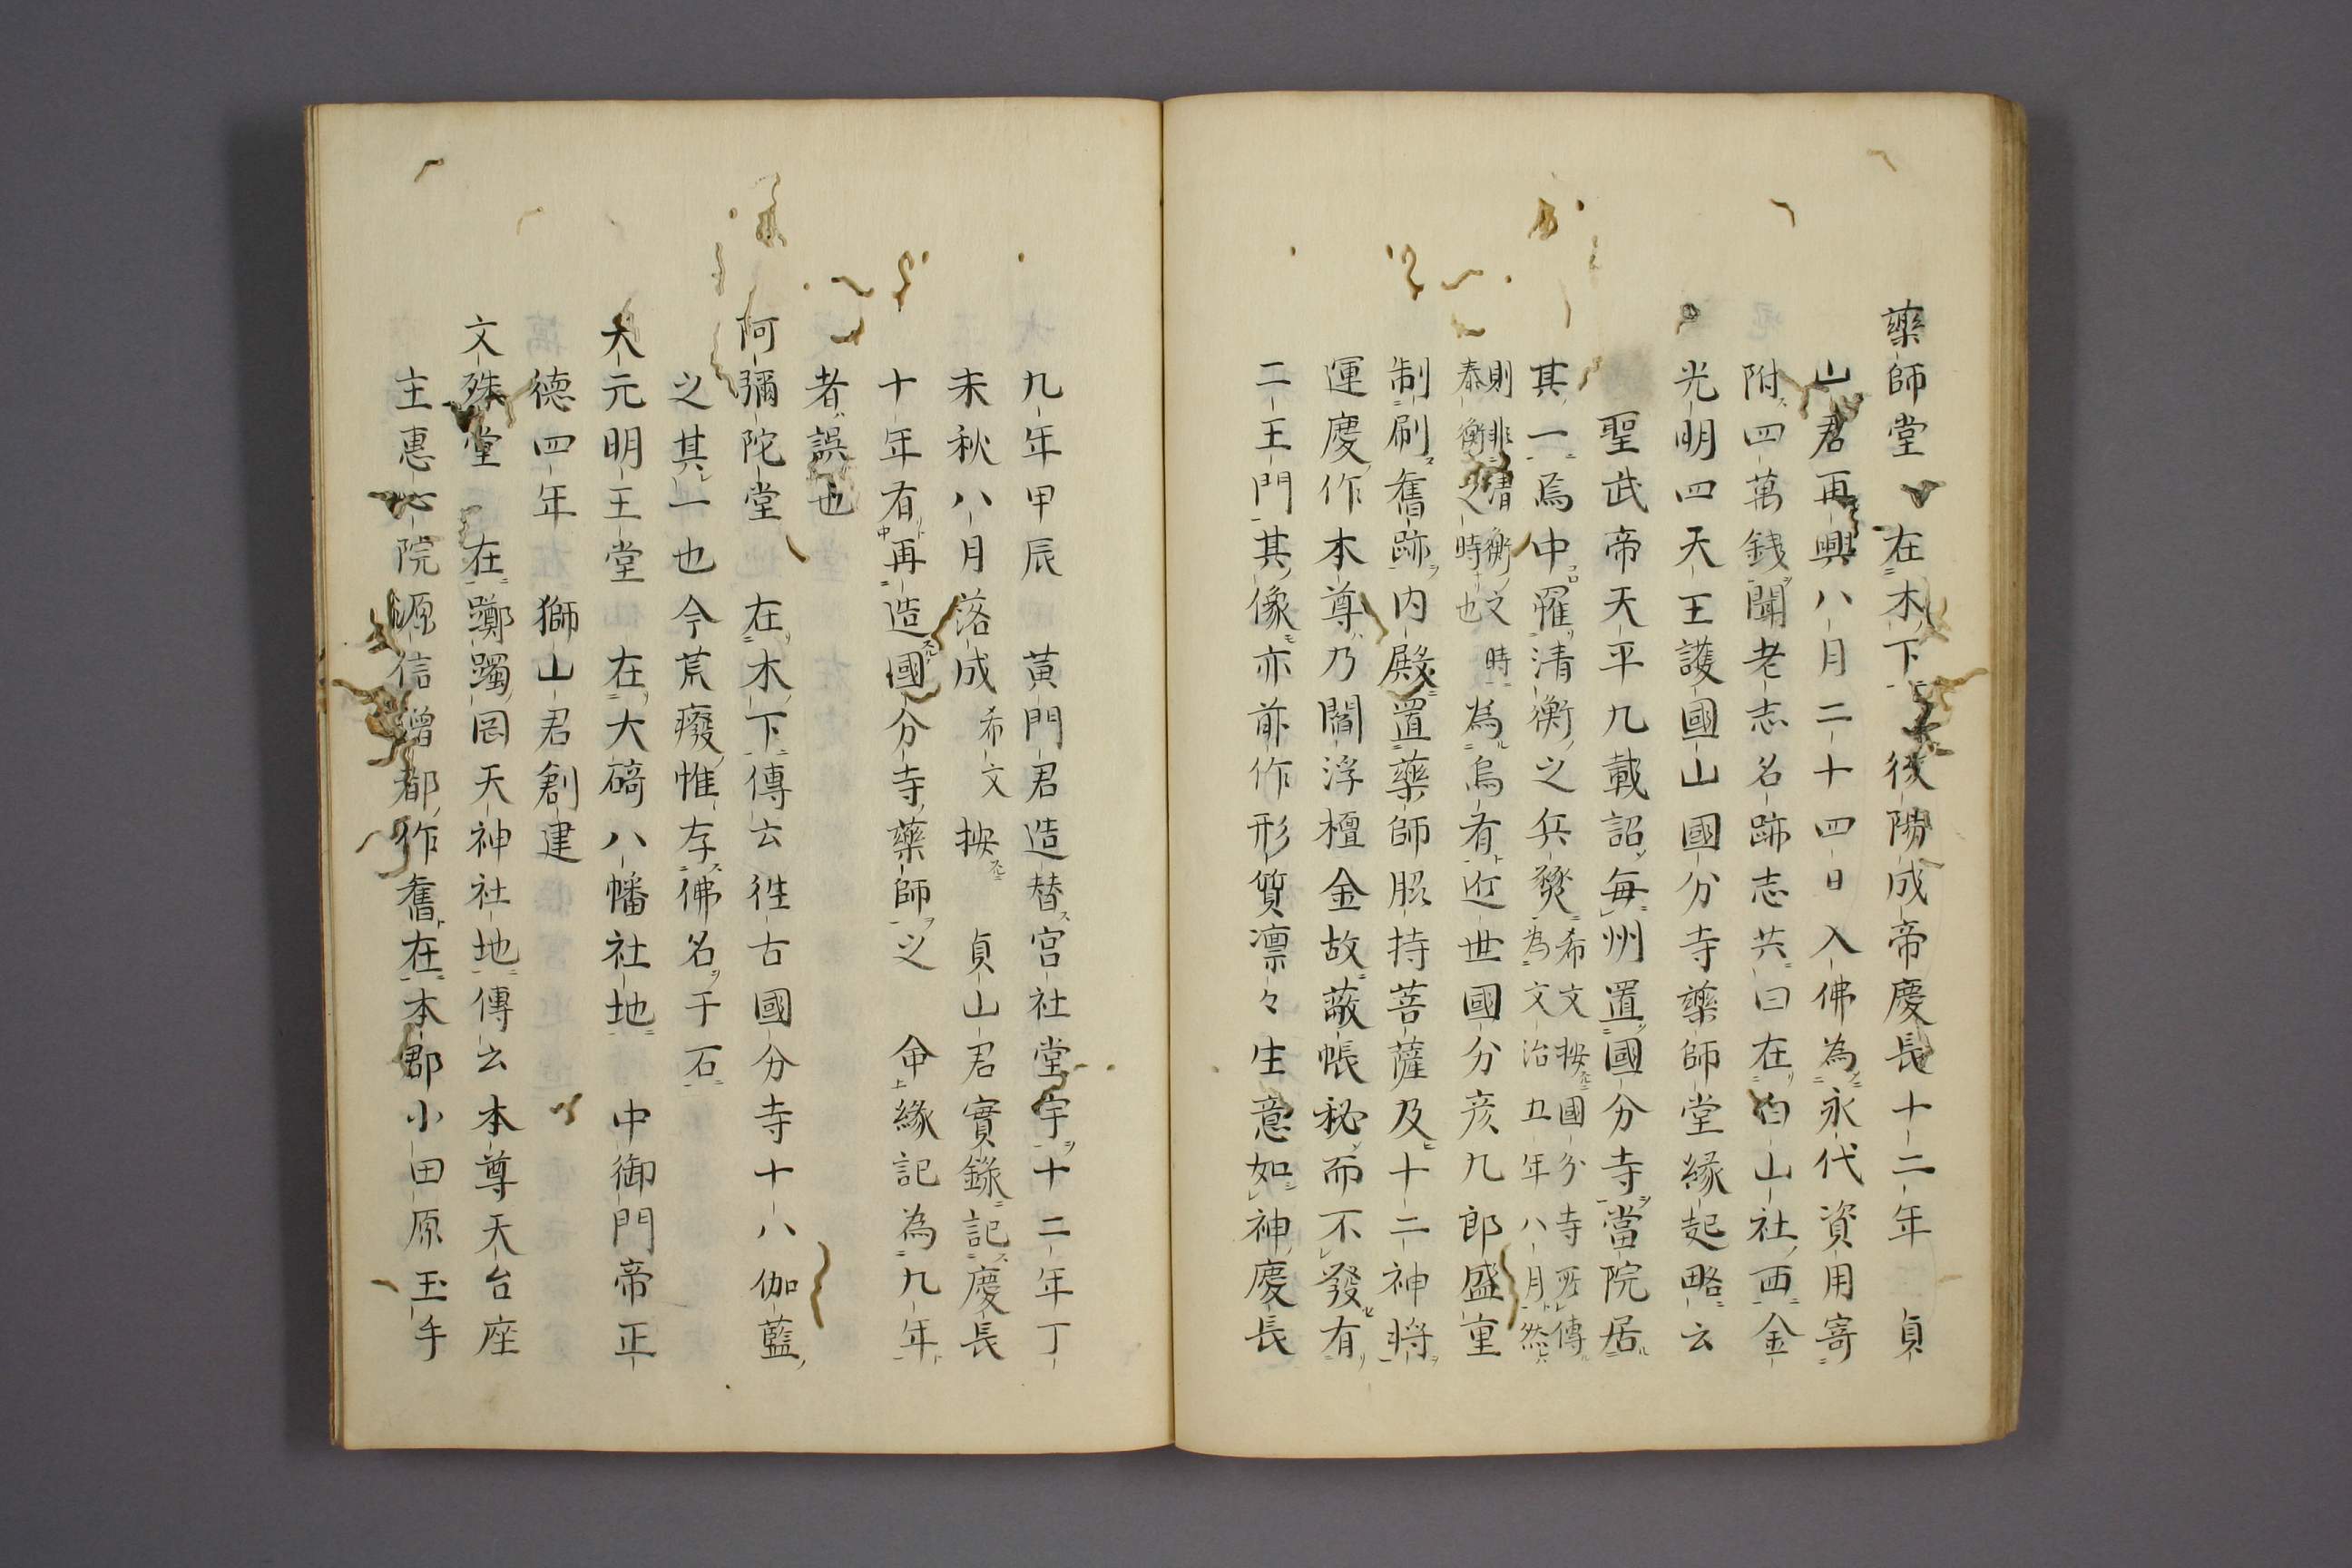 藥師堂 在木下 後陽成帝慶長十二年 貞
山君再興八月二十四日入佛為永代資用寄
附四萬錢聞老志名跡志共曰在白山社西金
光明四天王護國山國分寺藥師堂縁起略云
聖武帝天平九載詔每州置國分寺當院居
其一焉中罹清衡之兵燹希文按國分寺所傳
為文治五年八月然
則非清衡文時
泰衡之時也
為烏有近世國分彦九郎盛重
制刷舊跡内殿置藥師脇持菩薩及十二神將
運慶作本尊乃閻浮檀金故蔽帳秘而不發有
二王門其像亦前作形質凛々生意如神慶長
九年甲辰 黄門君造替宮社堂宇十二年丁
未秋八月落成 希文 按 貞山君實錄記慶長
十年有再造國分寺藥師之 命縁記為九年
者誤也
阿彌陀堂 在木下傳云徃古國分寺十八伽藍
之其一也今荒癈惟存佛名于石
大元明王堂 在大碕八幡社地 中御門帝正
德四年 獅山君創建
文殊堂 在躑躅岡天神社地傳云本尊天台座
主惠心院源信僧都作舊在本郡小田原玉手